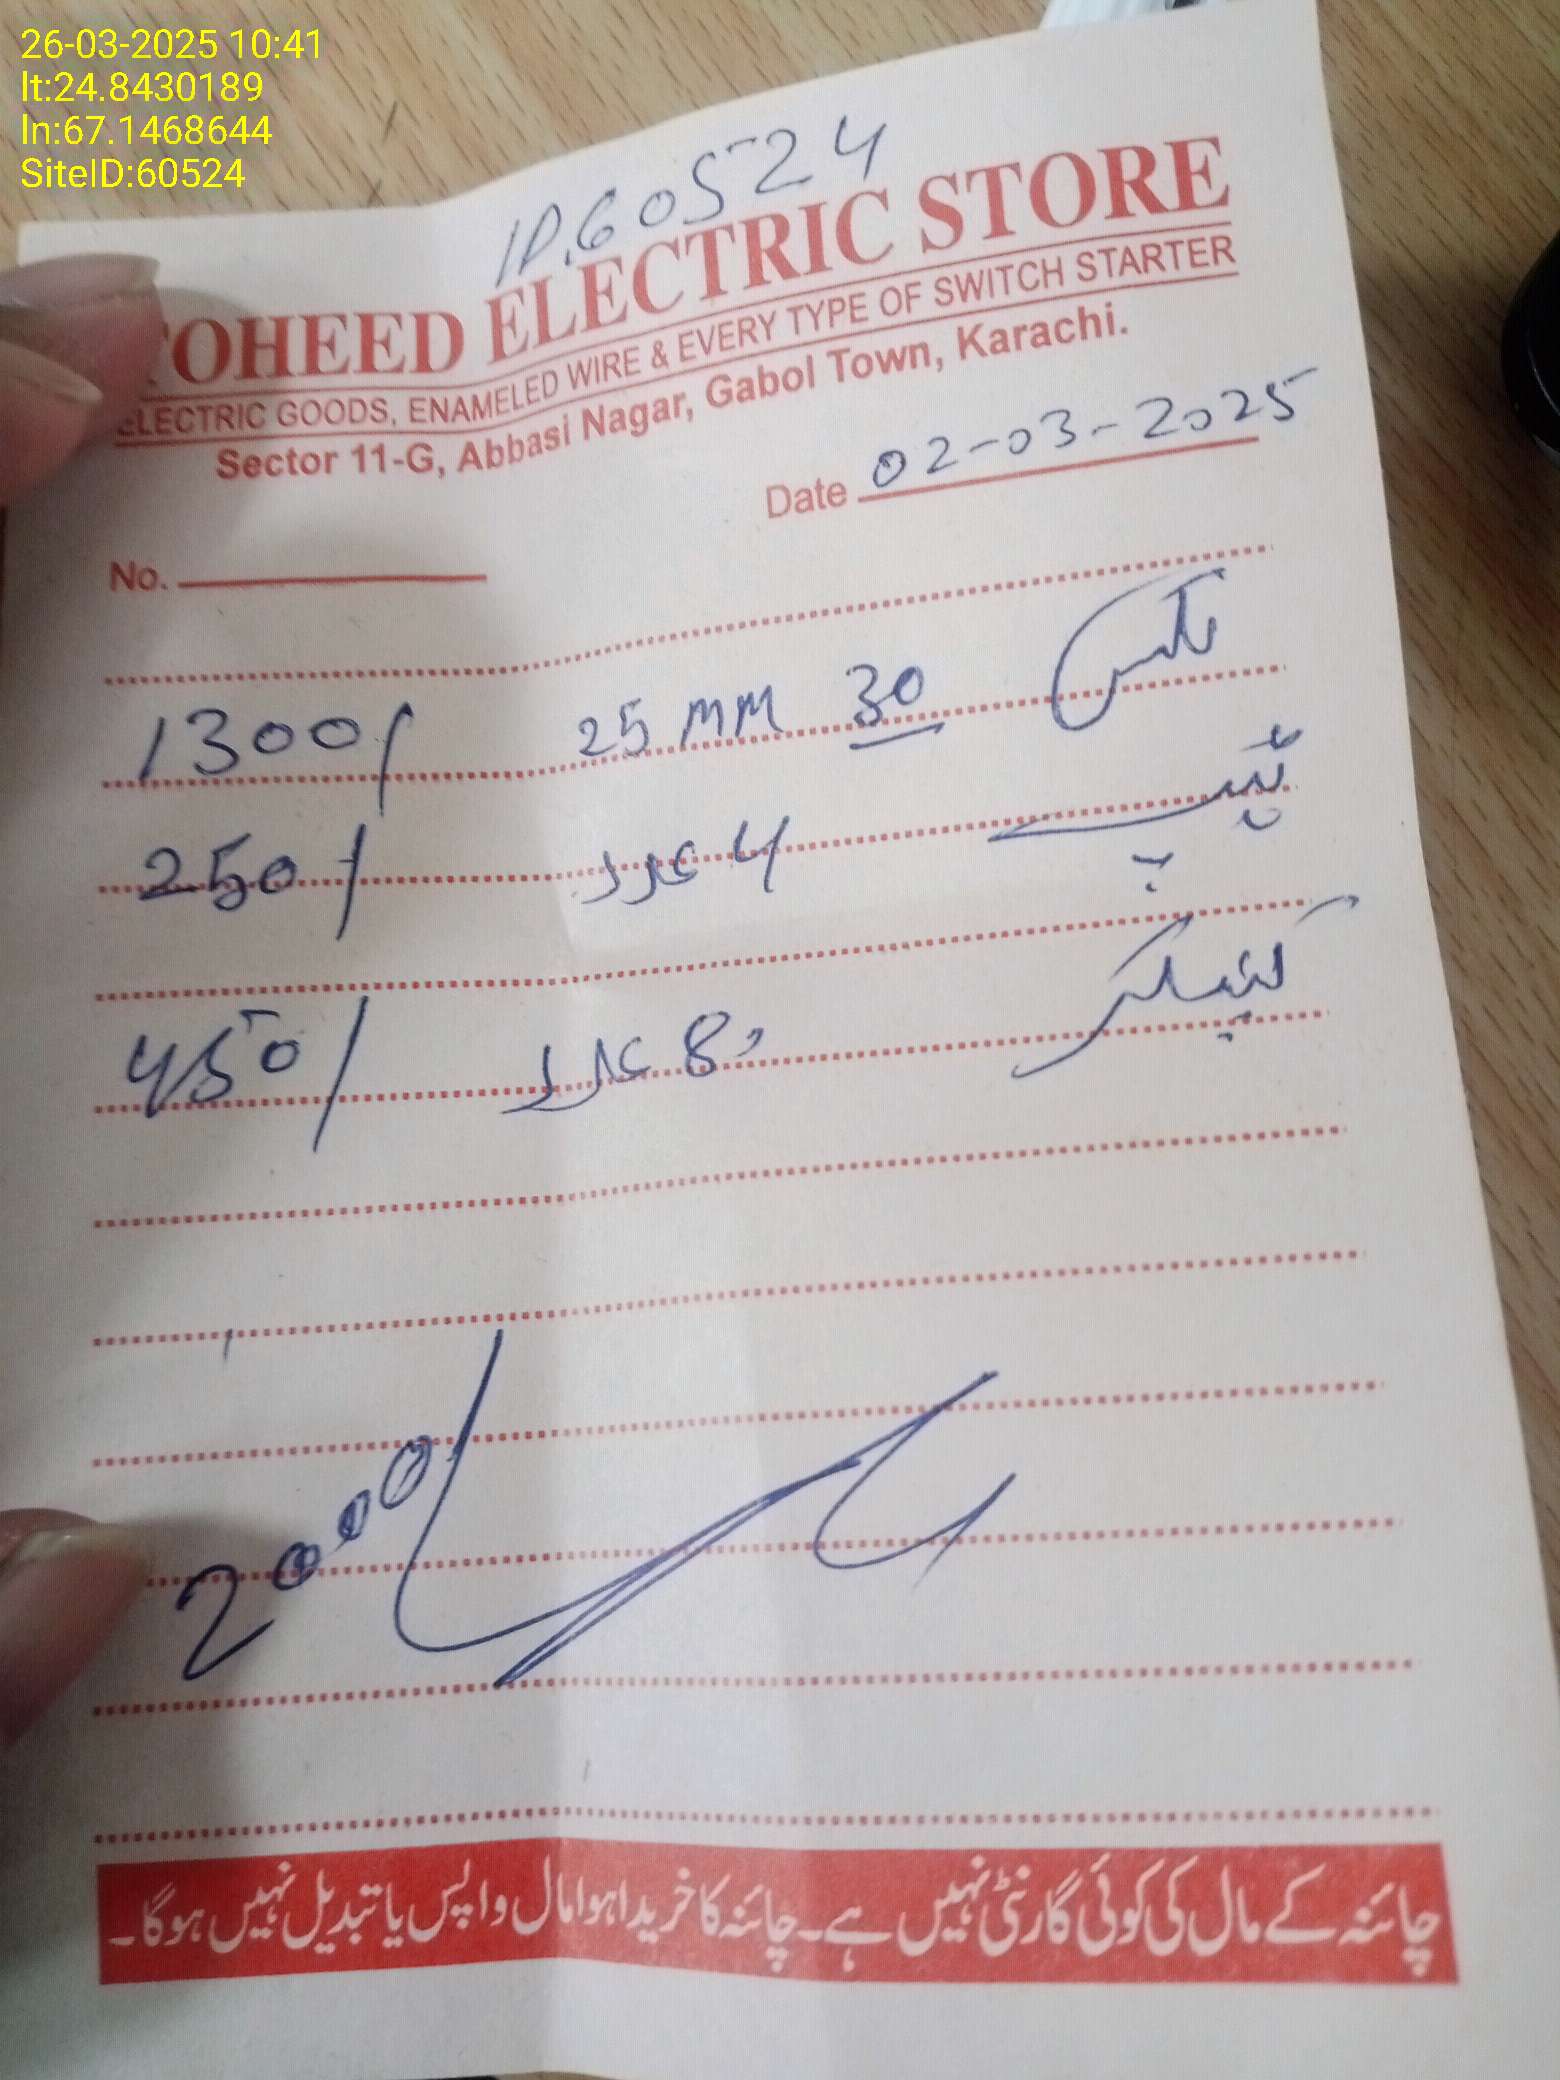 26-03-2025 10:41
lt:24.8430189
ln:67.1468644
SiteID:60524
ID.60524
TOHEED ELECTRIC STORE
ELECTRIC GOODS, ENAMELED WIRE & EVERY TYPE OF SWITCH STARTER
Sector 11-G, Abbasi Nagar, Gabol Town, Karachi.
Date 02-03-2025
No.
25 MM 30 1300/
ٹیپ 4 عدد 250/
8 عدد 450/
2000/
چائنہ کے مال کی کوئی گارنٹی نہیں ہے۔ چائنہ کا خریدا ہوا مال واپس یا تبدیل نہیں ہوگا۔